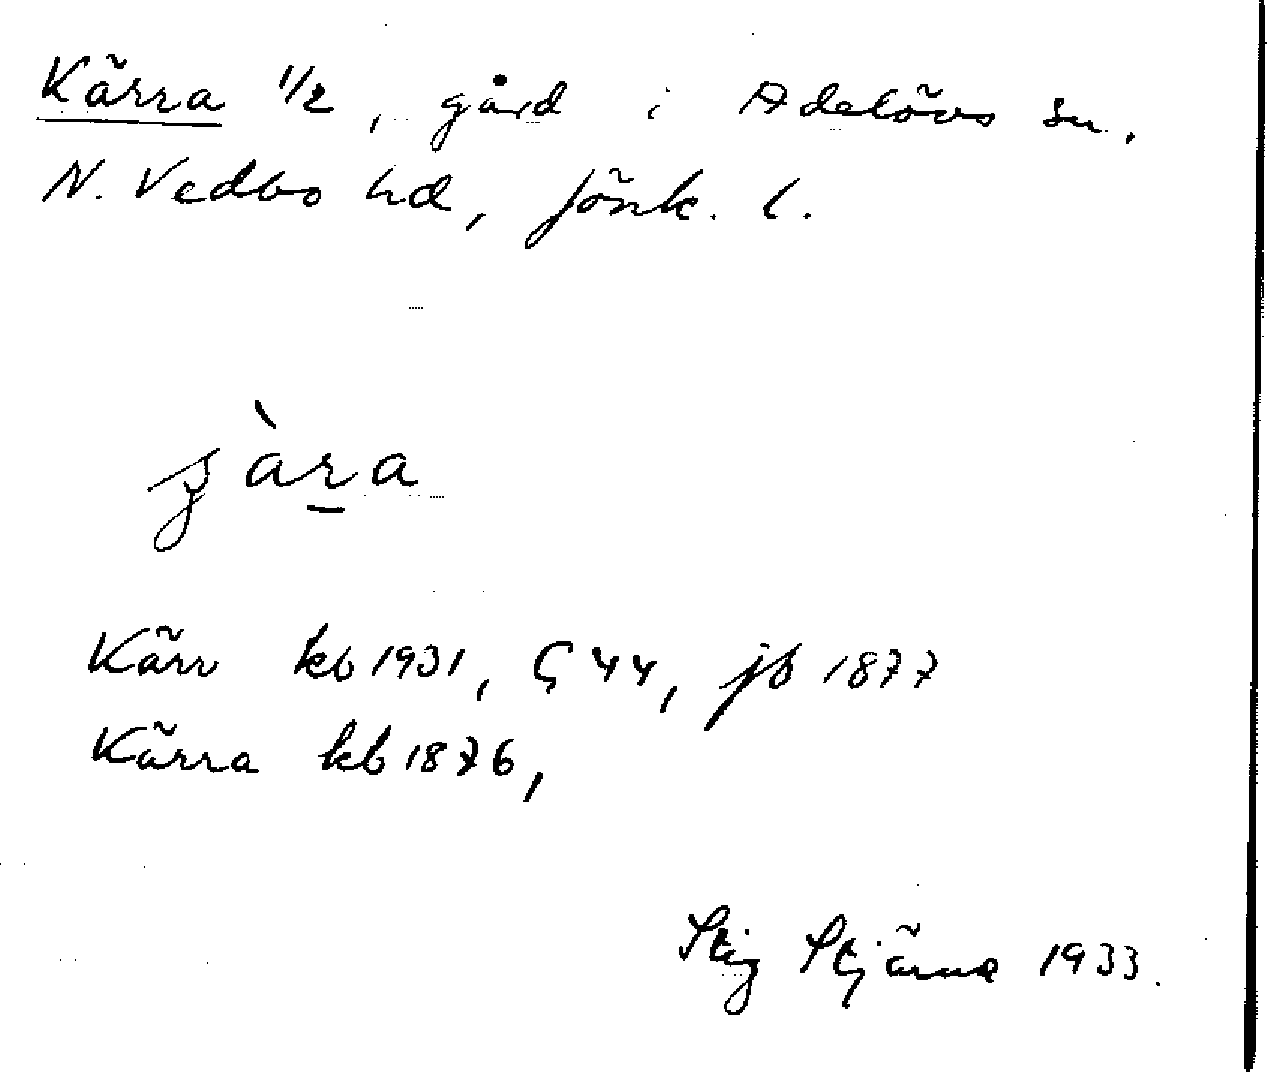 Kärra 1/2, gård i Adelövs sn.
N. Vedbo hd, Jönk. l.
àra
Kärr kb 1931, G 44, jb 1877
Kärra kb 1876,
Stig Stjärna 1933.